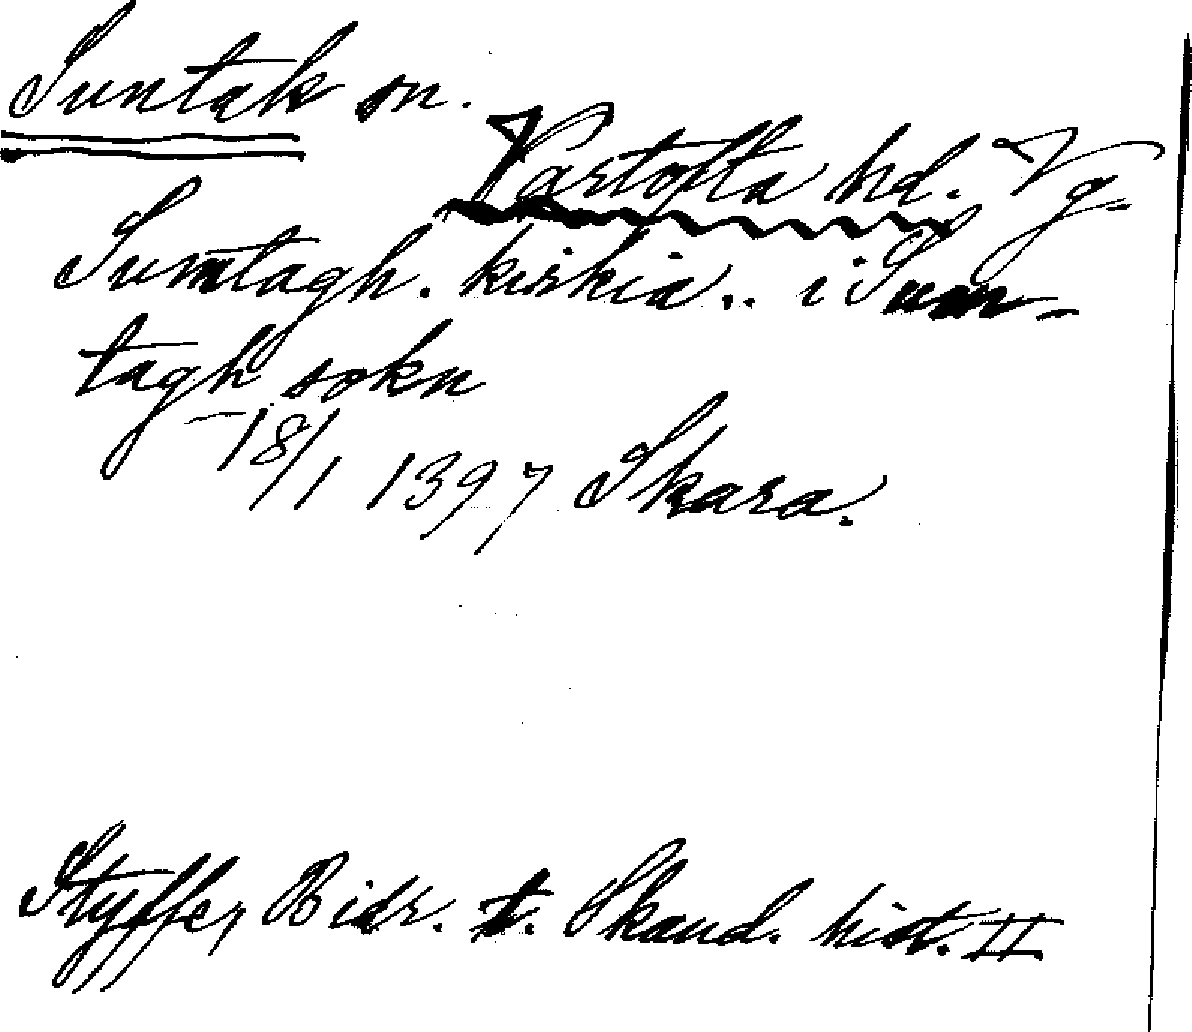 Suntak sn.
Vartofta hd. Vg.
Sumtagh. kirkia.. i Sum-
tagh sokn
18/1 1397 Skara.
Styffe, Bidr. t. Skand. hist. II